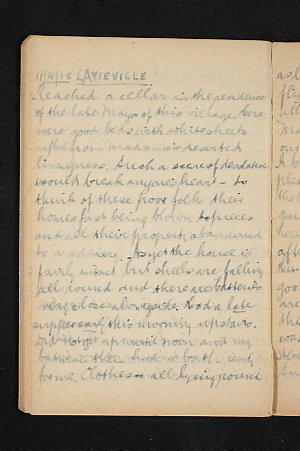 11/4/18 LAVIEVILLE
Reached a cellar in the residence
of the late Mayor of this village. Here
were good beds with white sheets
rifled from Madame's deserted
linen press. Such a scene of desolation
would break anyone's heart - to
think of these poor folk their
homes fast being blown to pieces
and all their property abandoned
to a soldiery. As yet the house is
fairly intact but shells are falling
all round and there are batteries
very close alongside. Had a late
supper early this morning upstairs.
Did not get up until noon and my
batman then had a bath ready
for me. Clothes all lying round